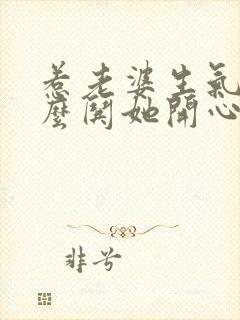 惹老婆生氣
麼鬨她開心
非兮